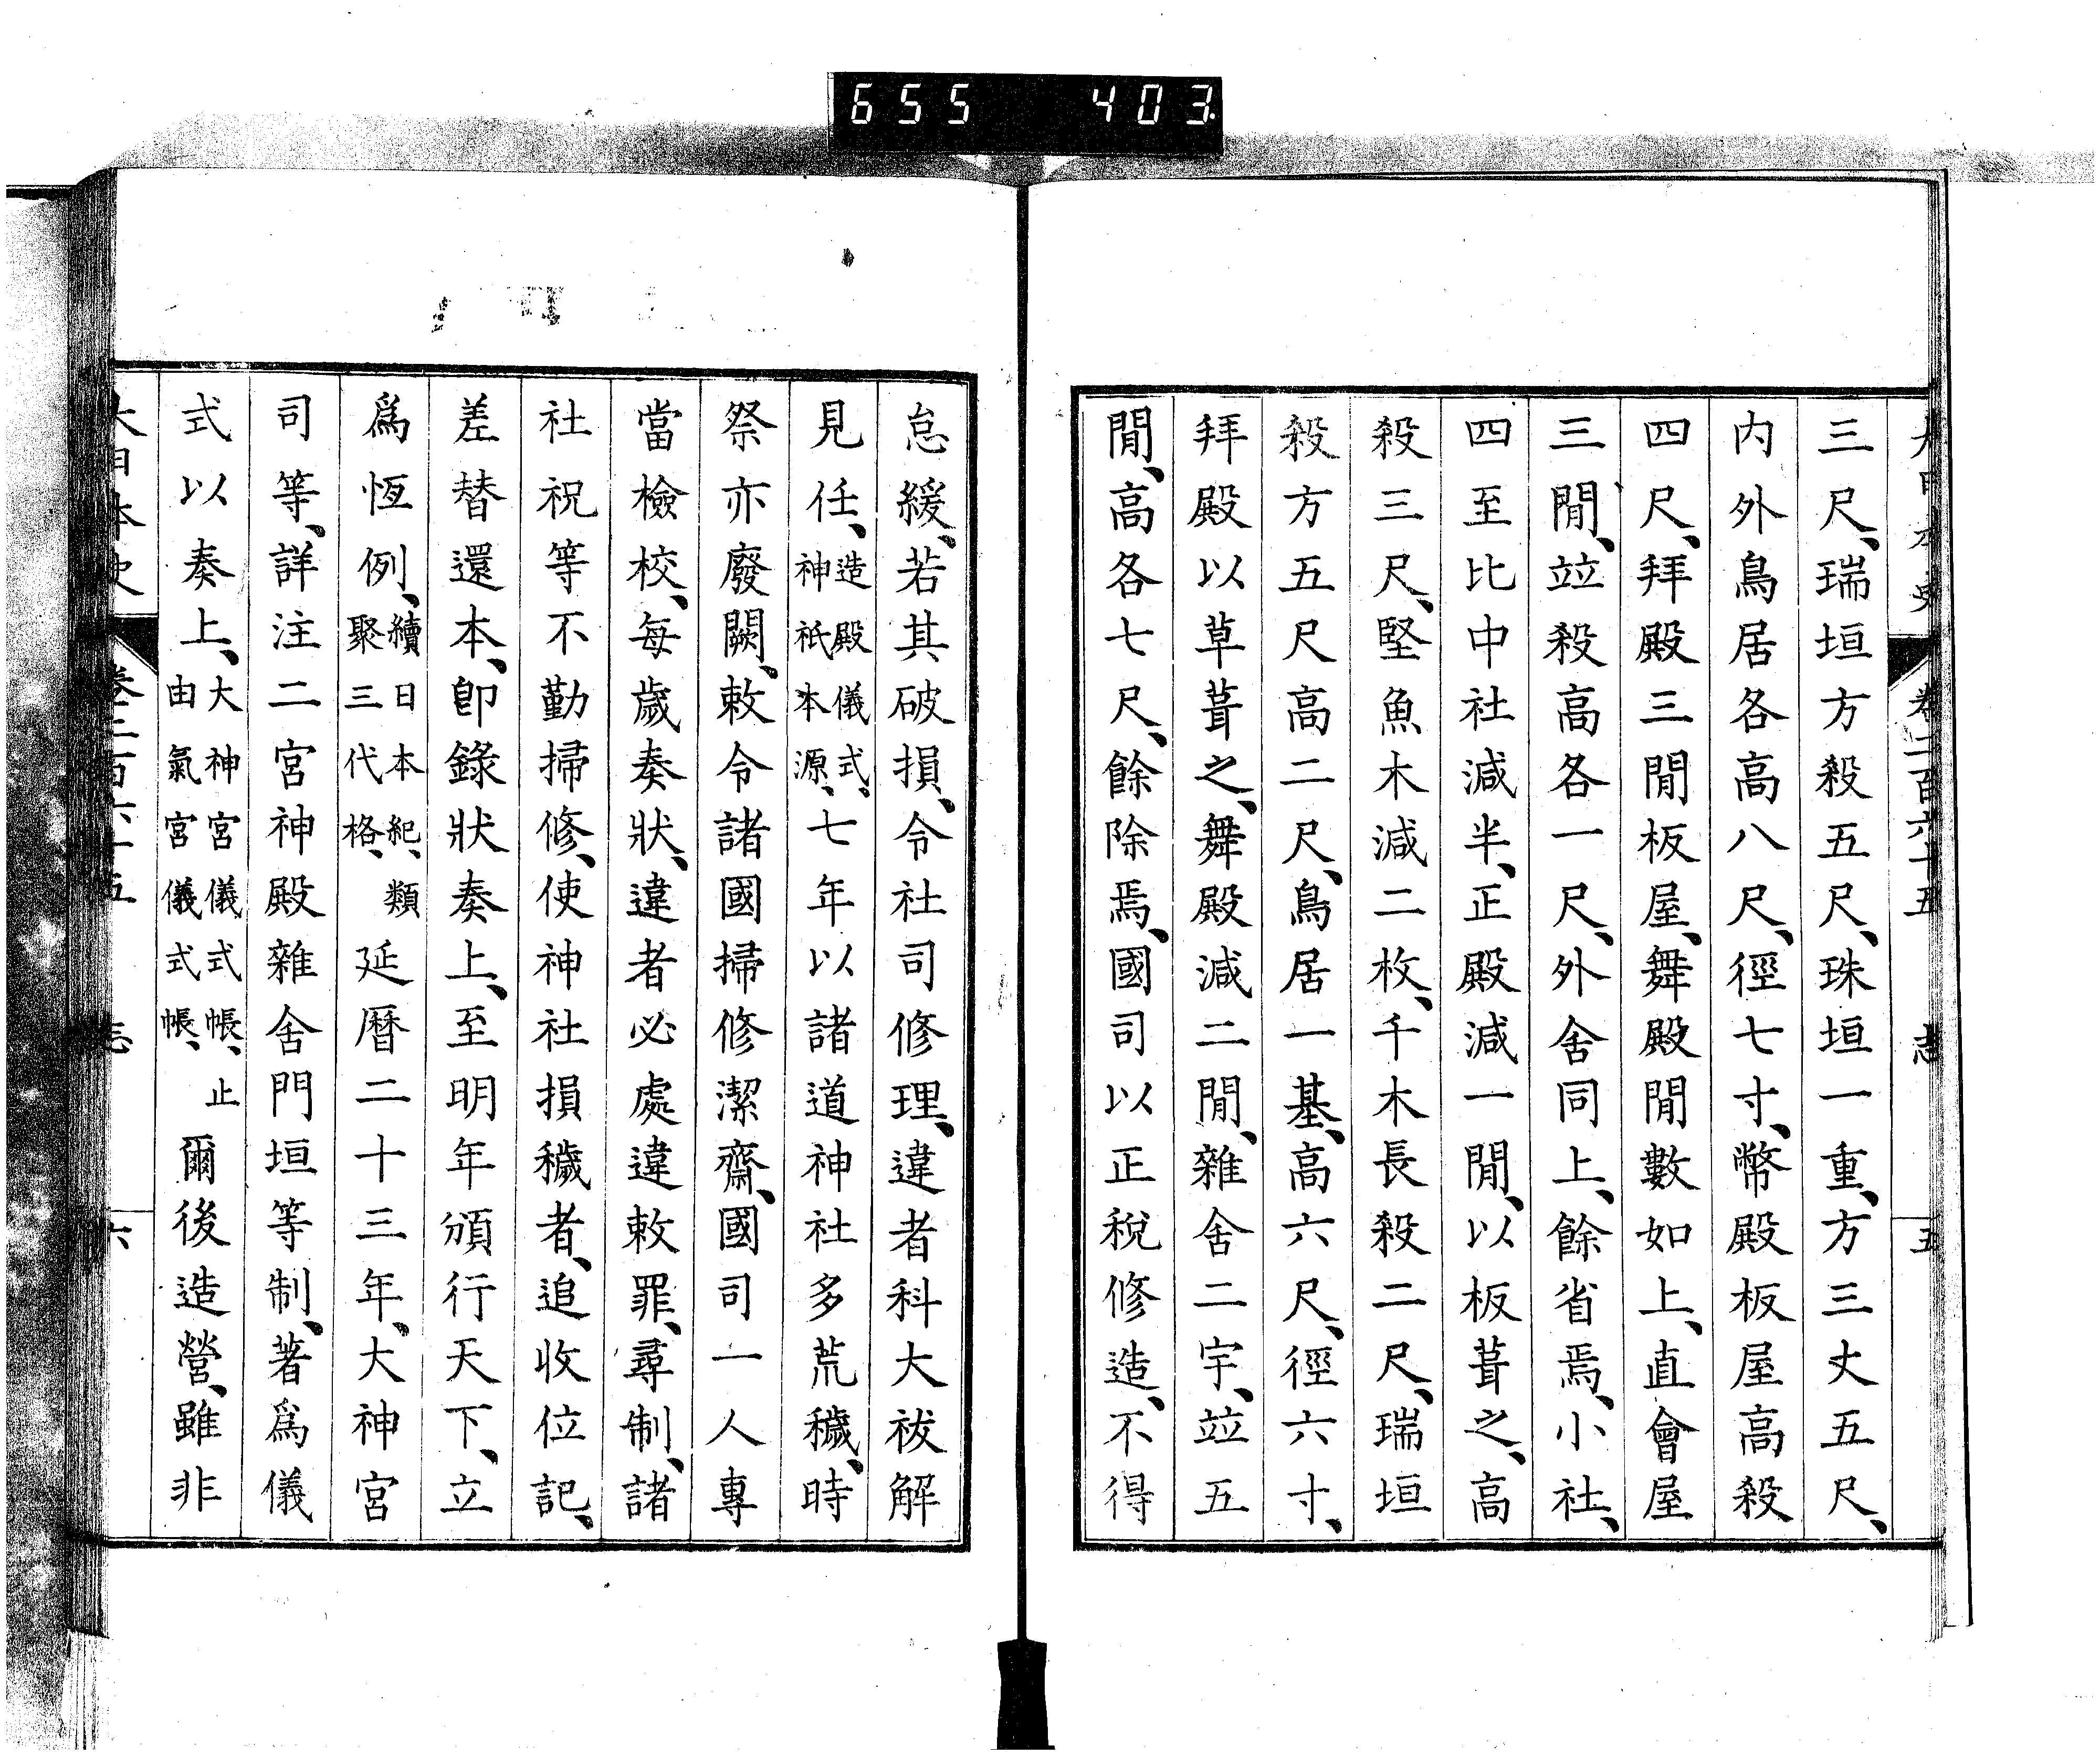 655 403
大日本史 卷二百六十五 志 五
三尺、瑞垣方殺五尺、珠垣一重、方三丈五尺、
內外鳥居各高八尺、徑七寸、幣殿板屋高殺
四尺、拜殿三閒板屋、舞殿閒數如上、直會屋
三閒、竝殺高各一尺、外舍同上、餘省焉、小社、
四至比中社減半、正殿減一閒、以板葺之、高
殺三尺、堅魚木減二枚、千木長殺二尺、瑞垣
殺方五尺高二尺、鳥居一基、高六尺、徑六寸、
拜殿以草葺之、舞殿減二閒、雜舍二宇、竝五
閒、高各七尺、餘除焉、國司以正稅修造、不得
怠緩、若其破損、令社司修理、違者科大祓解
見任、造殿儀式、神祇本源、七年以諸道神社多荒穢、時
祭亦廢闕、敕令諸國掃修潔齋、國司一人專
當檢校、每歲奏狀、違者必處違敕罪、尋制、諸
社祝等不勤掃修、使神社損穢者、追收位記、
差替還本、卽錄狀奏上、至明年頒行天下、立
爲恆例、續日本紀、類聚三代格、延曆二十三年、大神宮
司等、詳注二宮神殿雜舍門垣等制、著爲儀
式以奏上、大神宮儀式帳、止由氣宮儀式帳、爾後造營、雖非
大日本史 卷二百六十五 志 六